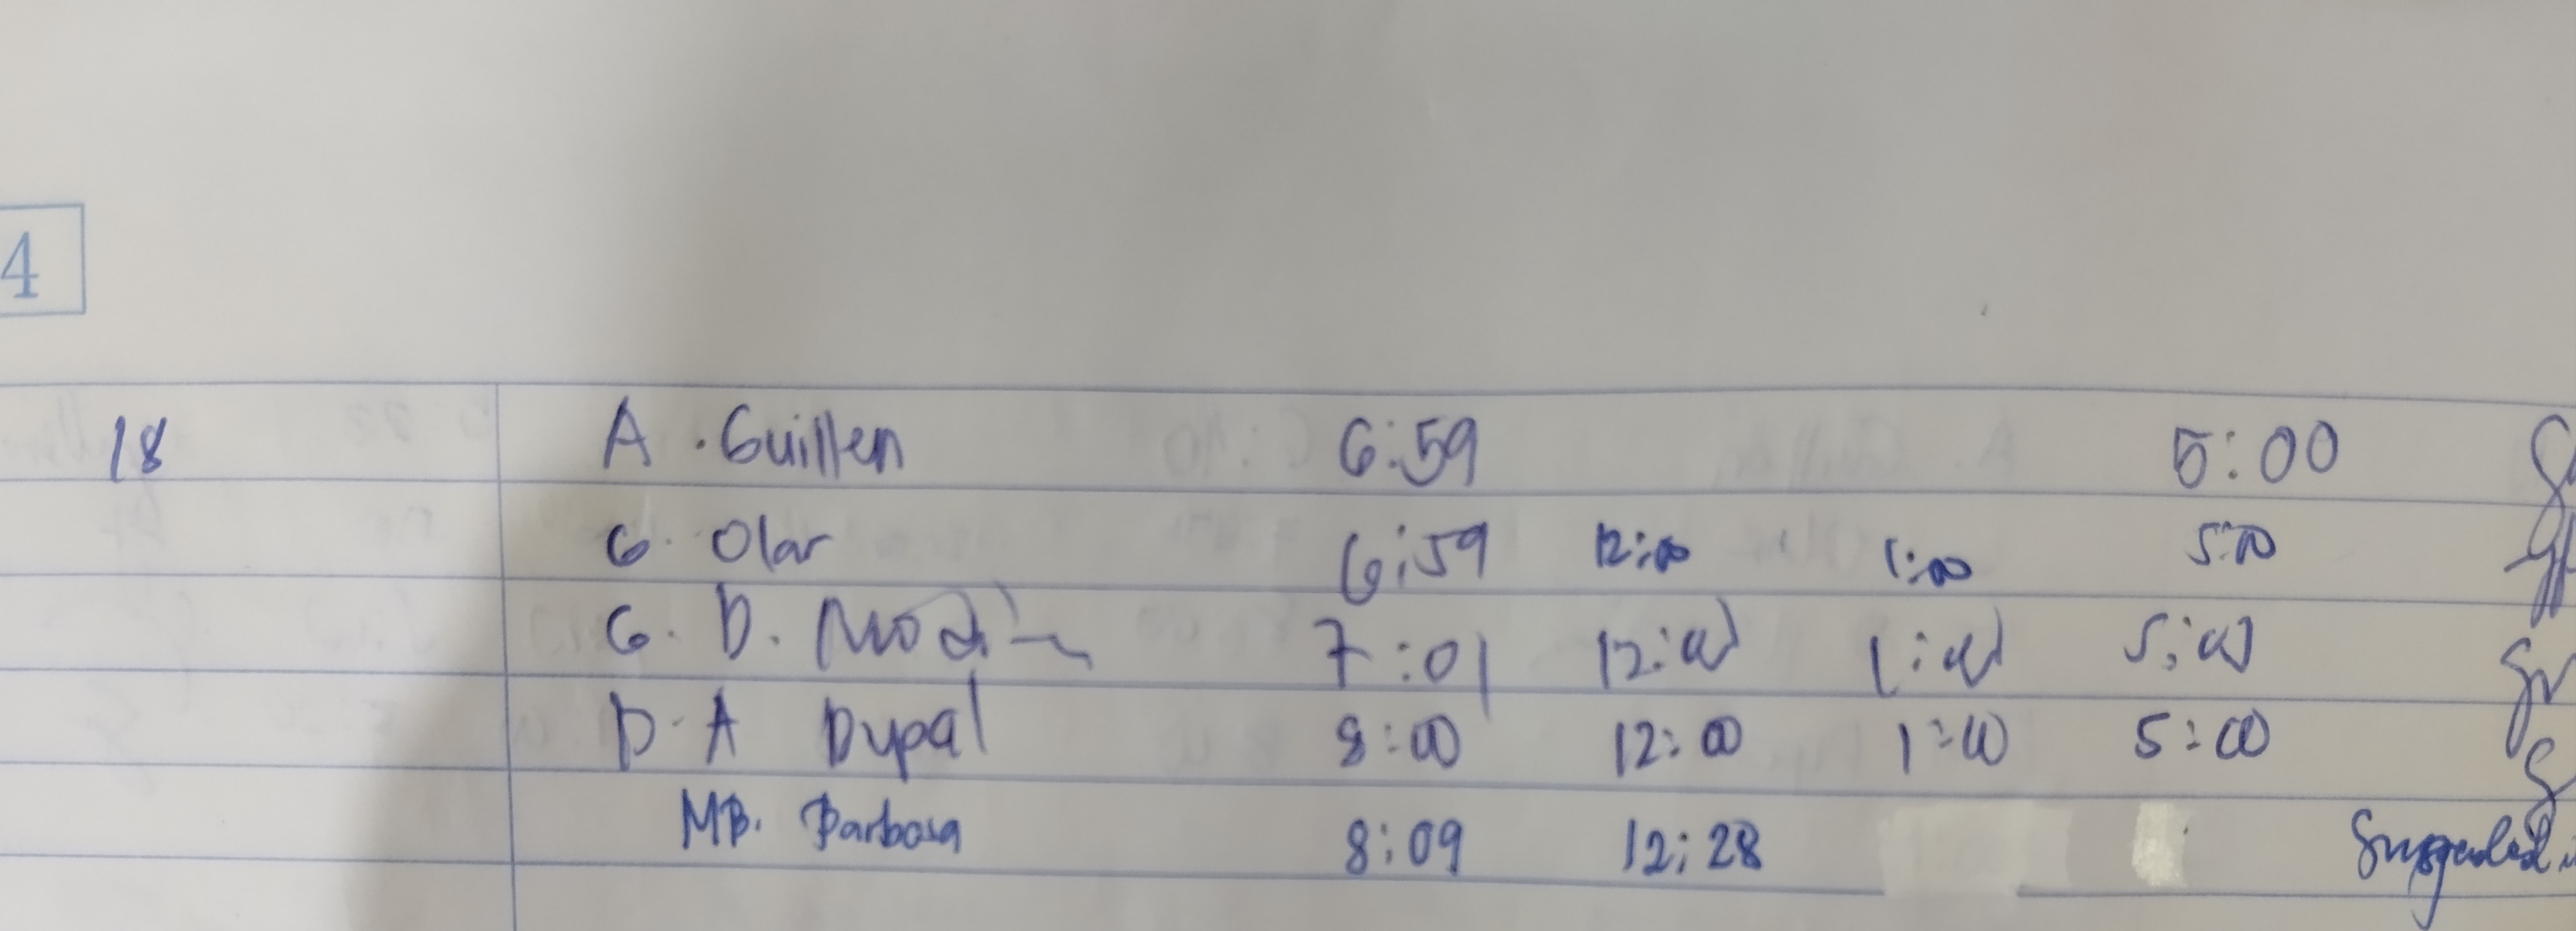 4
18 A. Guillen 6:59 5:00
G. Olar 6:59 12:00 1:00 5:00
G. D. 7:01 12:00 1:00 5:00
D. A Dupal 8:00 12:00 1:00 5:00
MB. Barbosa 8:09 12:28 Suspended